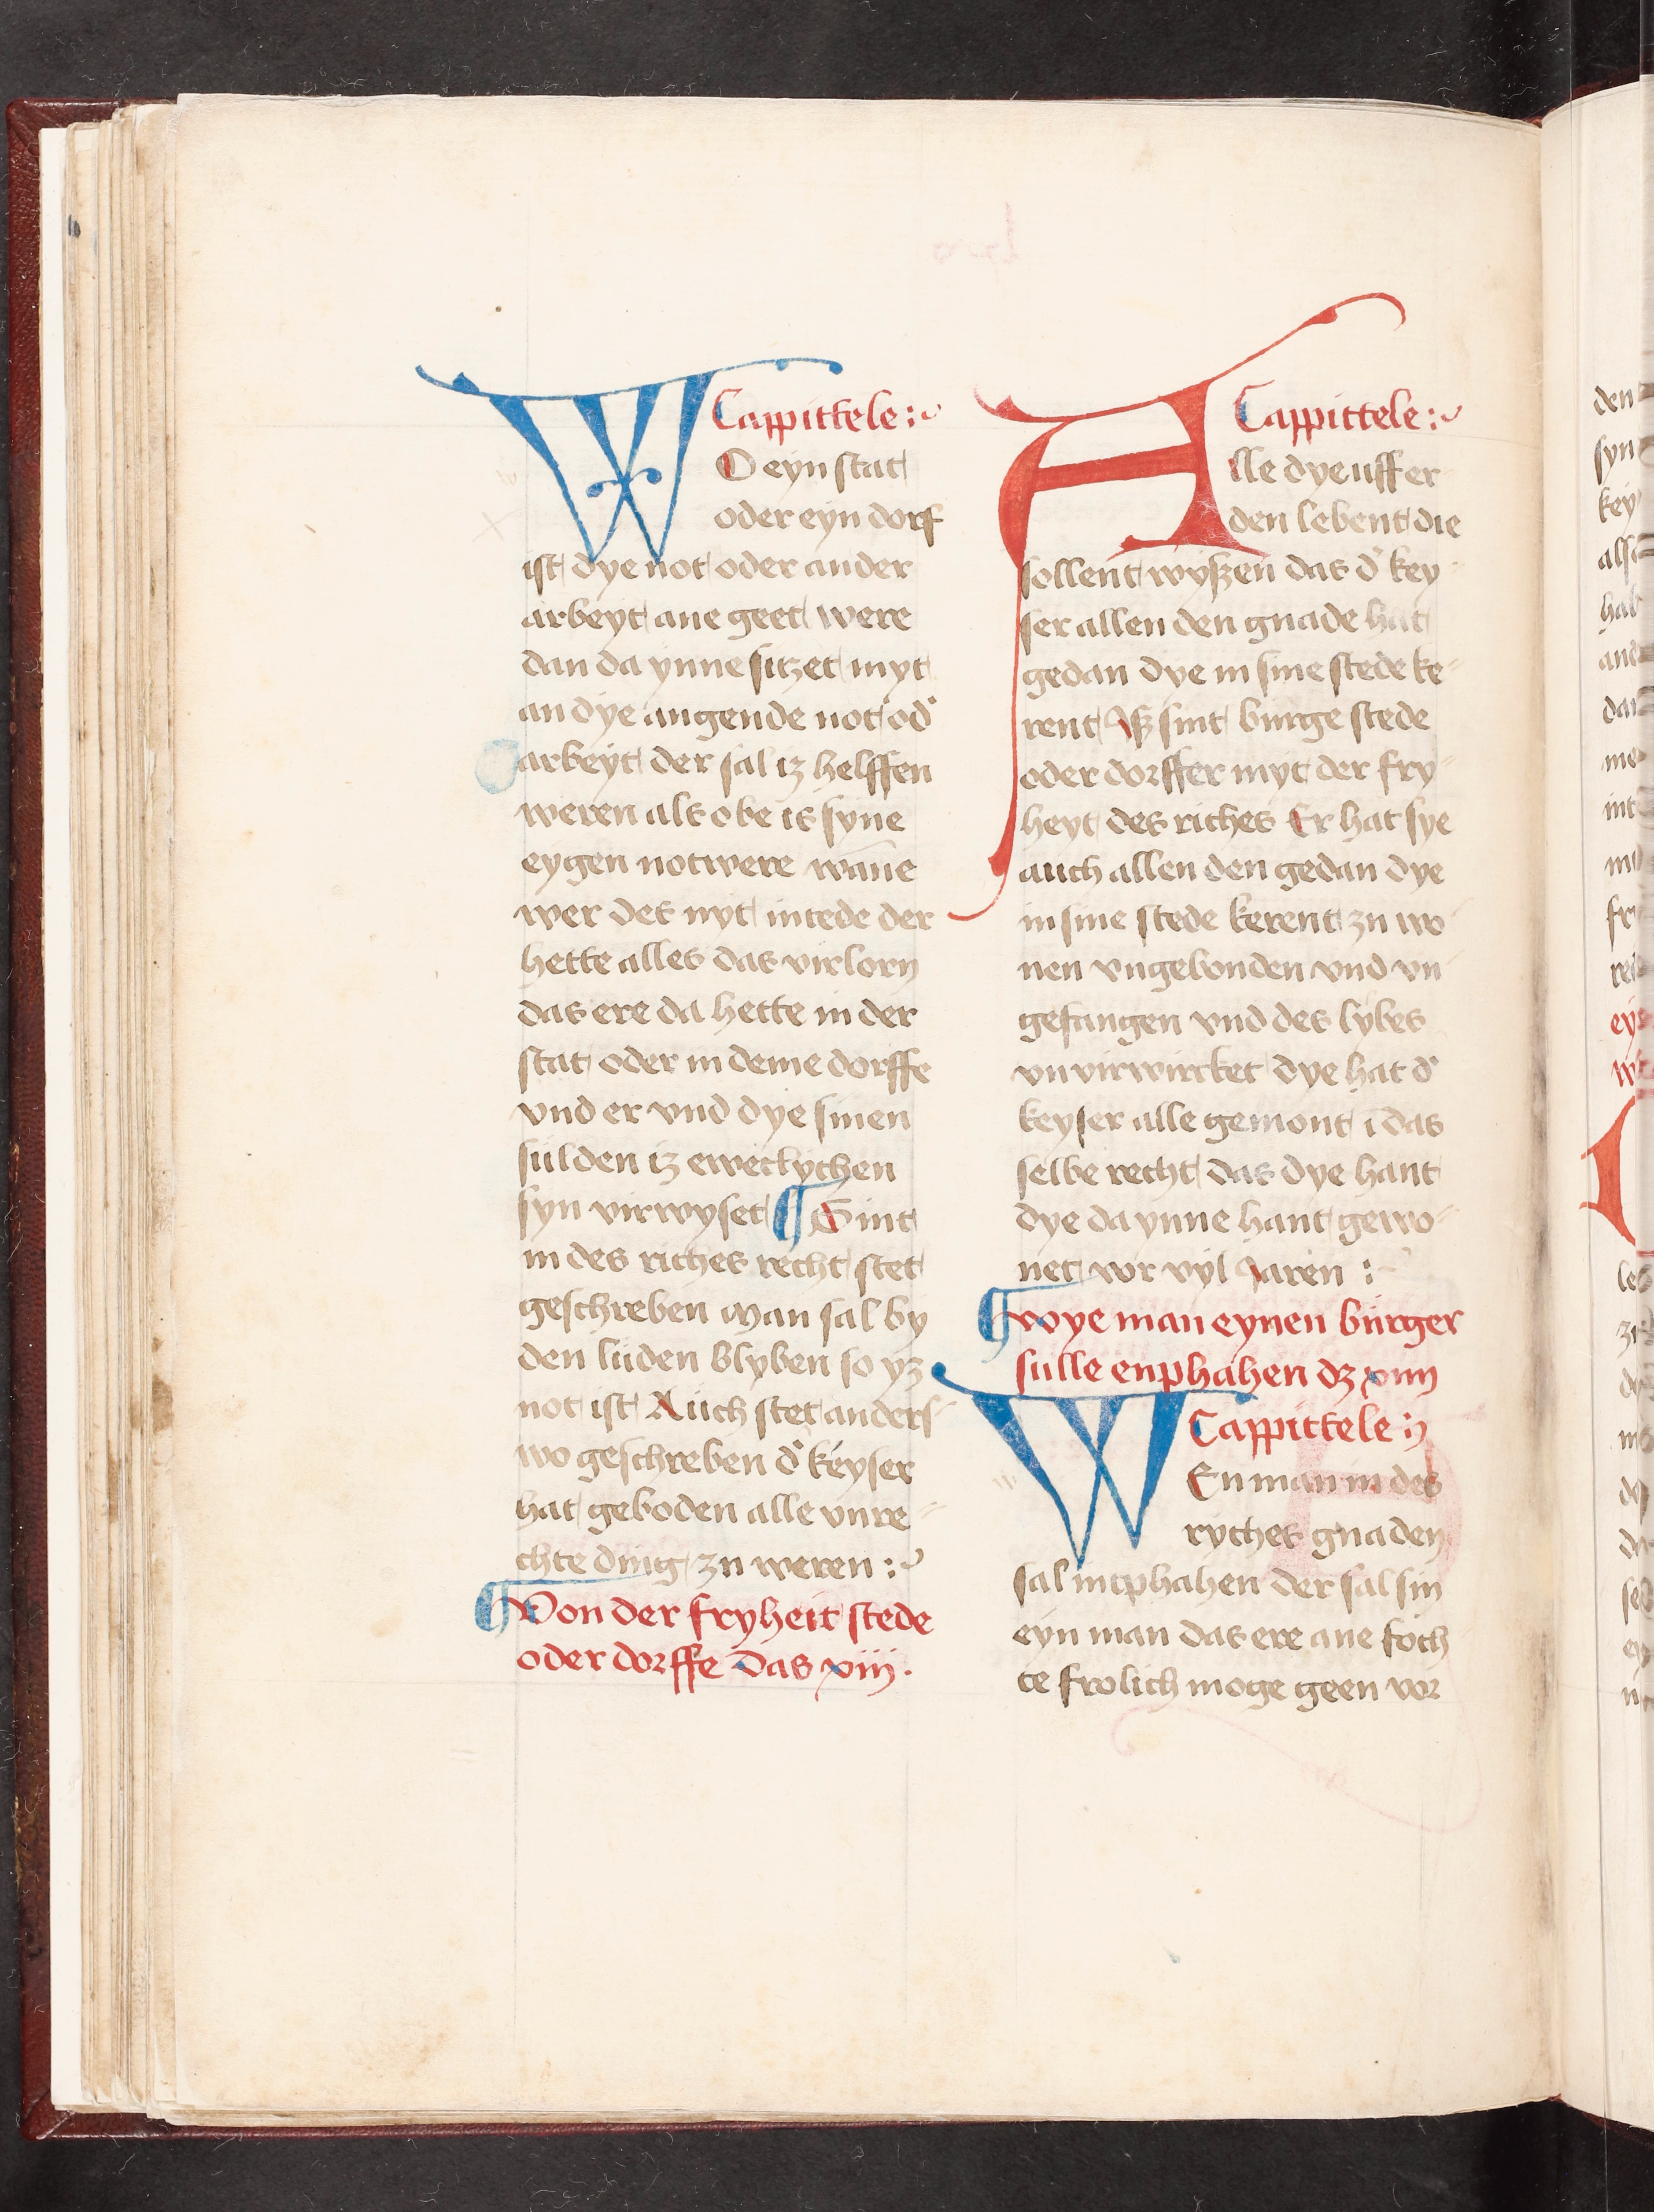 Cappittele :
WO eyn stat
oder eyn dorf
ist dye not oder ander
arbeyt ane geet were
dan da ynne sitzet myt
an dye angende not od'
arbeyt der sal iz helffen
weren als obe is syne
eygen not were wāne
wer des nyt intede der
hette alles das virlorn
das ere da hette in der
stat oder in deme dorffe
vnd er vnd dye sinen
sulden iz eweclychen
syn virwyset ¶ Sint
in des riches recht stet
geschreben man sal by
den luden blyben so yz
not ist Auch stet anders
wo geschreben d' keyser
hat geboden alle vnre-
chte ding zu weren :
¶ Von der fryheit stede
oder dorffe das xiij.
Cappittele :
Alle dye uff er
den lebent die
sollent wyßen das d' key
ser allen den gnade hat
gedan dye in sine stede ke-
rent Iß sint burge stede
oder dorffer myt der fry-
heyt des riches Er hat sye
auch allen den gedan dye
in sine stede kerent zu wo-
nen vngebonden vnd vn
gefangen vnd des lybes
vnvirwircket dye hat d'
keyser alle gemont ī das
selbe recht das dye hant
dye da ynne hant gewo-
net vor vyl Jaren :
¶ wye man eynen burger
sulle enphahen dz xiiij
Cappittele :
WEn man in des
ryches gnaden
sal intphahen der sal sin
eyn man das ere ane foch
te frolich moge geen vor
den
syn
key